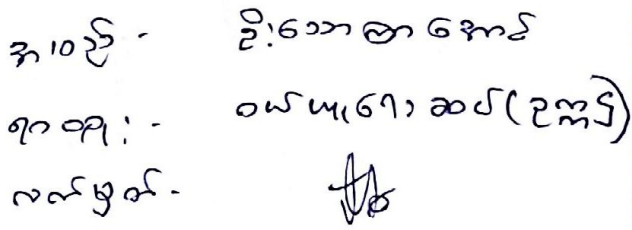 အမည် - ဦးသောဏာအောင်
ရာထူး - ဝယ်ယူရေးဆပ် (ဥက္ကဋ္ဌ)
လက်မှတ် -